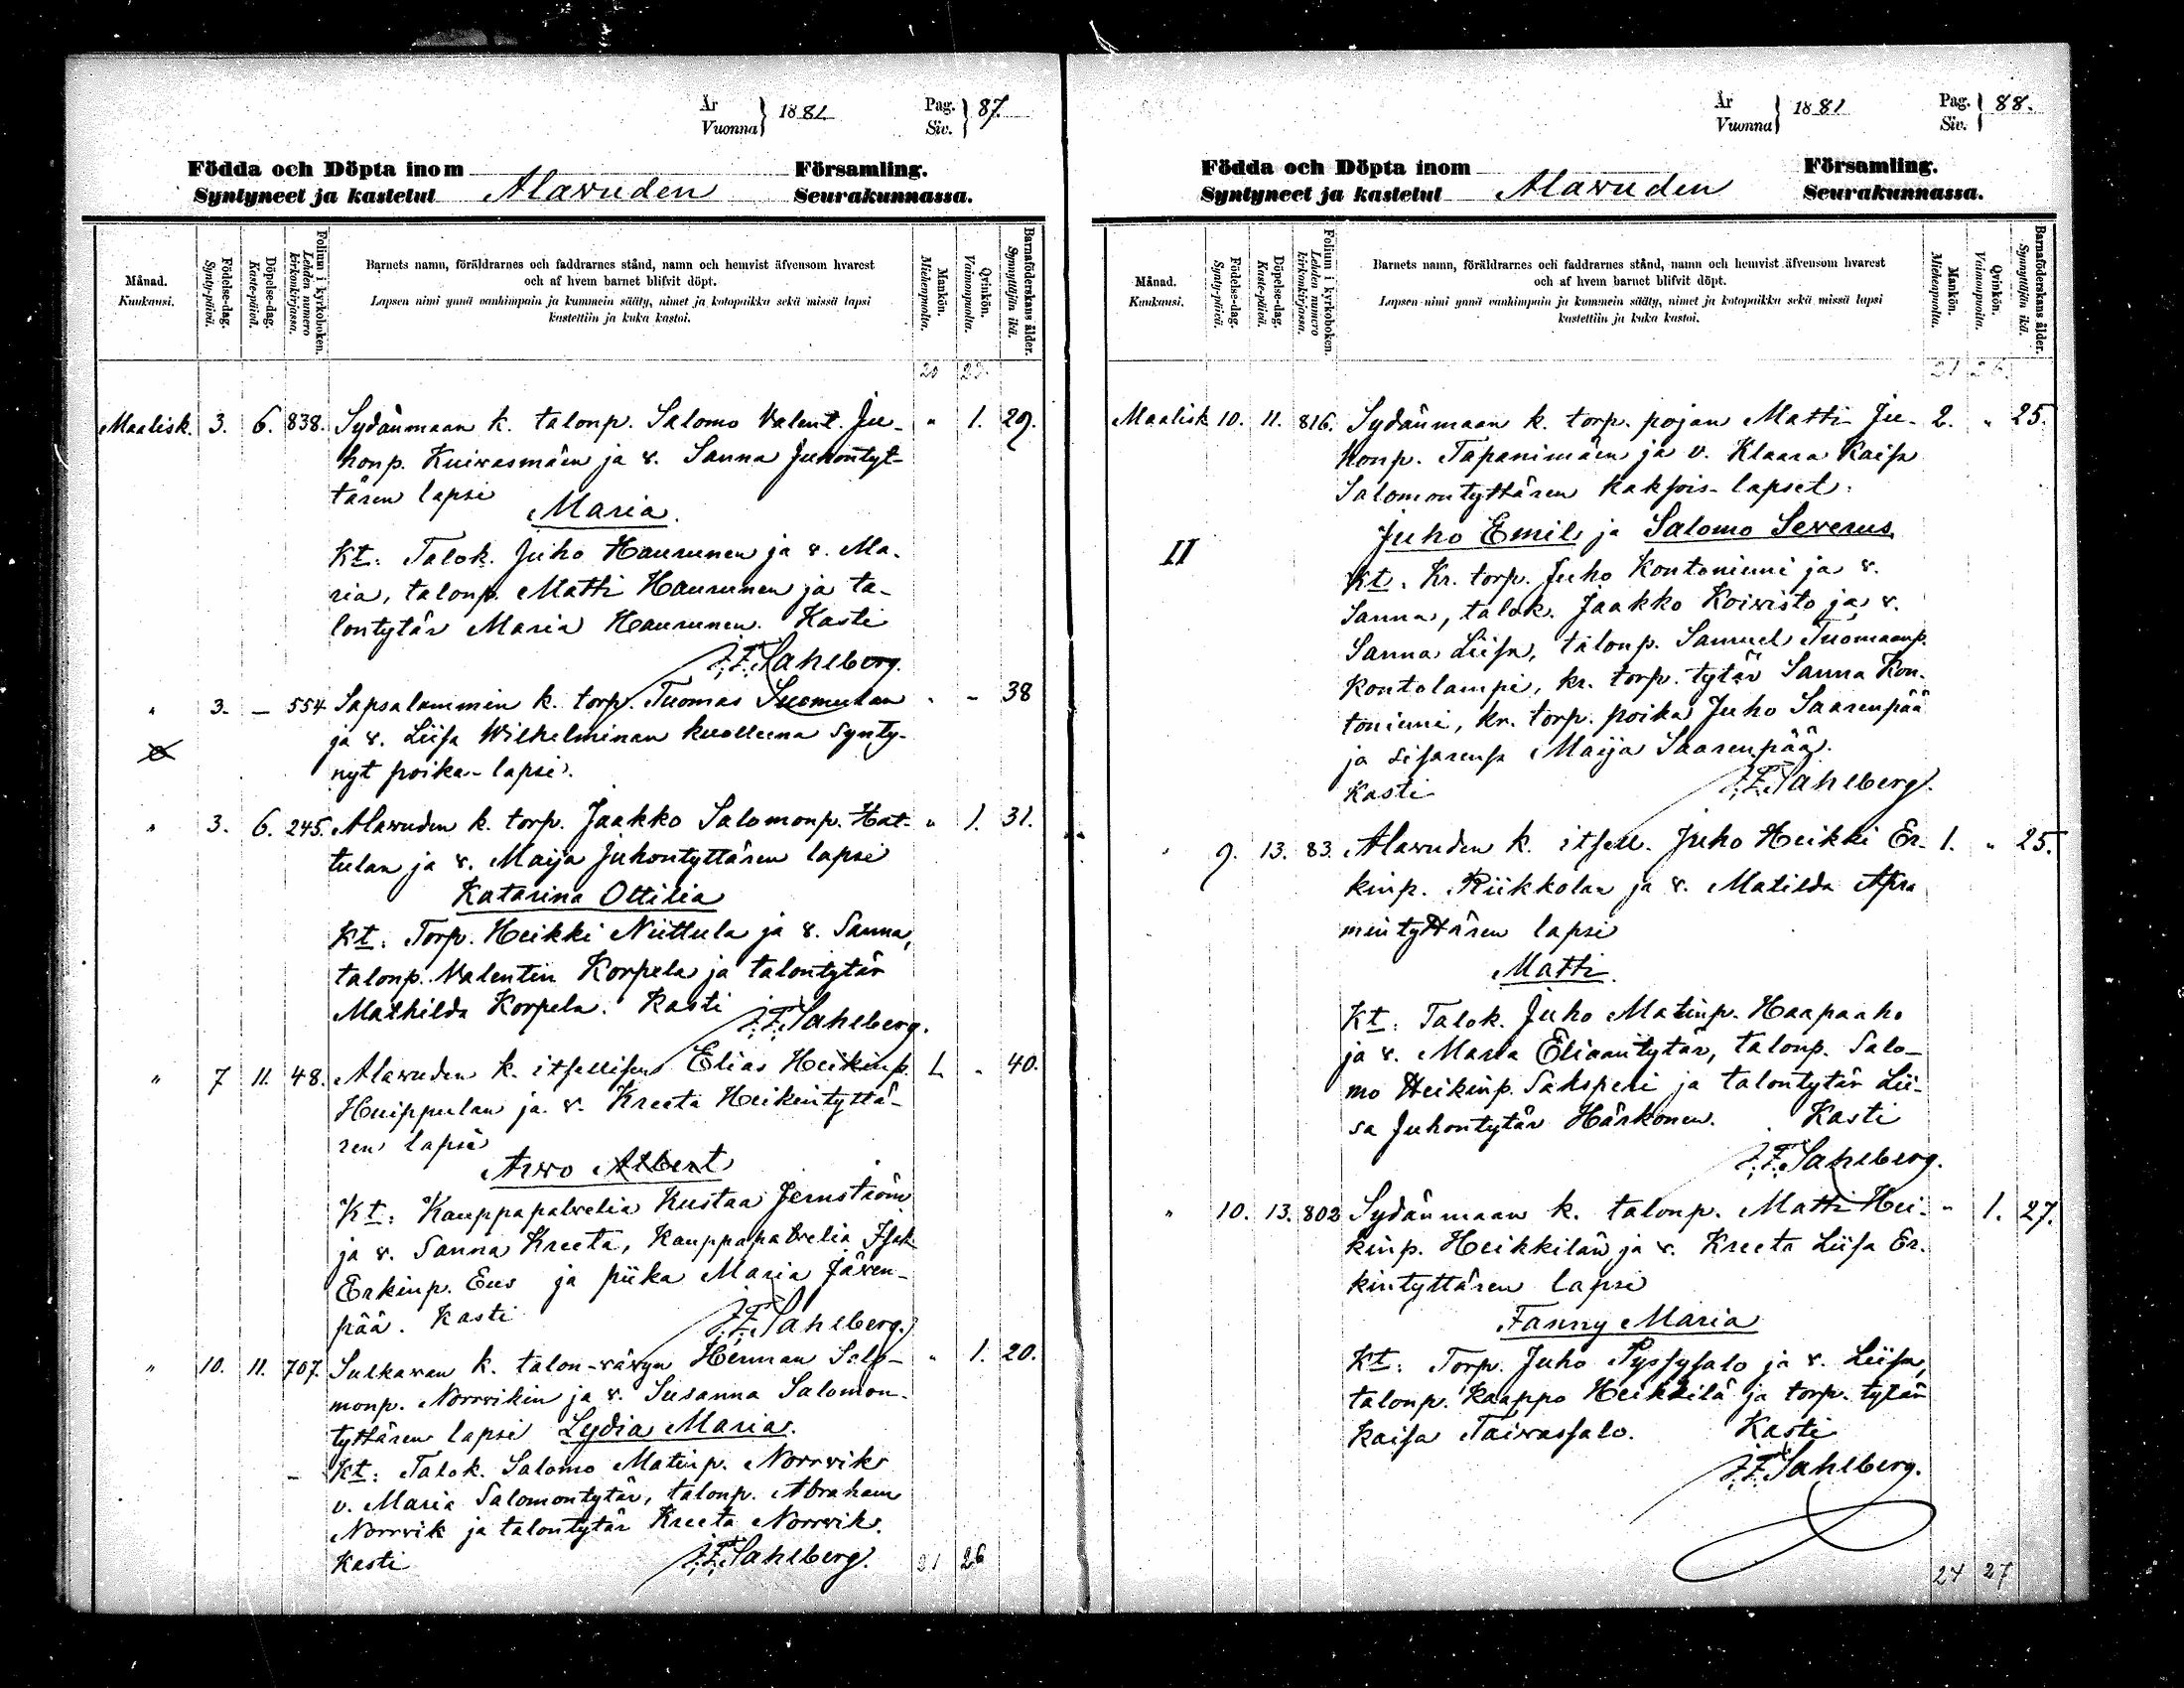 År
Vuonna } 1881
Pag.
Siv. } 87.
Födda och Döpta inom Församling.
Syntyneet ja kastetut Alavuden Seurakunnassa.
Månad.
Kuukausi.
Födelse-dag.
Synty-päivä.
Döpelse-dag.
Kaste-päivä.
Folium i kyrkoboken.
Lehden numero kirkonkirjassa.
Barnets namn, föräldrarnes och faddrarnes stånd, namn och hemvist äfvensom hvarest
och af hvem barnet blifvit döpt.
Lapsen nimi ynnä vanhimpain ja kummein sääty, nimet ja kotopaikka sekä missä lapsi
kastettiin ja kuka kastoi.
Mankön.
Miehenpuolta.
Qvinkön.
Vaimonpuolta.
Barnaföderskans ålder.
Synnyttäjän ikä.
20 23.
Maalisk. 3. 6. 838. Sydänmaan k. talonp. Salomo Valent. Ju- " 1. 29.
honp. Kuivasmäen ja v. Sanna Juhontyt-
tären lapsi
Maria.
Kt: Talok. Juho Haurunen ja v. Ma-
ria, talonp. Matti Haurunen ja ta-
lontytär Maria Haurunen. Kasti
J.F. Sahlberg.
" 3. – 554 Sapsalammin k. torp. Tuomas Suomulan " – 38
ja v. Liisa Wilhelminan kuolleena synty-
nyt poika-lapsi.
" 3. 6. 245. Alavuden k. torp. Jaakko Salomonp. Hat- " 1. 31.
tulan ja v. Maija Juhontyttären lapsi
Katarina Ottilia
Kt: Torp. Heikki Niittula ja v. Sanna,
talonp. Valentin Korpela ja talontytär
Mathilda Korpela. Kasti
J.F. Sahlberg.
" 7 11. 48. Alavuden k. itsellisen Elias Heikinp. 1. " 40.
Huippulan ja v. Kreeta Heikintyttä-
ren lapsi
Arvo Albert
Kt: Kauppapalvelia Kustaa Jernström
ja v. Sanna Kreeta, Kauppapalvelia Isak
Erkinp. Eus ja piika Maria Järven-
pää. Kasti
J.F. Sahlberg.
" 10. 11. 707. Sulkavan k. talon-vävyn Herman Salo- " 1. 20.
monp. Norrvikin ja v. Susanna Salomon-
tyttären lapsi Lydia Maria.
Kt: Talok. Salomo Matinp. Norrvik
v. Maria Salomontytär, talonp. Abraham
Norrvik ja talontytär Kreeta Norrvik.
Kasti J.F. Sahlberg. 21 26
År
Vuonna } 1881
Pag.
Siv. } 88.
Födda och Döpta inom Församling.
Syntyneet ja kastetut Alavuden Seurakunnassa.
Månad.
Kuukausi.
Födelse-dag.
Synty-päivä.
Döpelse-dag.
Kaste-päivä.
Folium i kyrkoboken.
Lehden numero kirkonkirjassa.
Barnets namn, föräldrarnes och faddrarnes stånd, namn och hemvist äfvensom hvarest
och af hvem barnet blifvit döpt.
Lapsen nimi ynnä vanhimpain ja kummein sääty, nimet ja kotopaikka sekä missä lapsi
kastettiin ja kuka kastoi.
Mankön.
Miehenpuolta.
Qvinkön.
Vaimonpuolta.
Barnaföderskans ålder.
Synnyttäjän ikä.
21 26.
Maalisk 10. 11. 816. Sydänmaan k. torp. pojan Matti Ju- 2. " 25.
honp. Tapanimäen ja v. Klaara Kaisa
Salomontyttären kaksois-lapset:
Juho Emil ja Salomo Severus
II
Kt: Kr. torp. Juho Kontoniemi ja v.
Sanna, talok. Jaakko Koivisto ja v.
Sanna Liisa, talonp. Samuel Tuomaanp.
Kontolampi, kr. torp. tytär Sanna Kon-
toniemi, kr. torp. poika Juho Saarenpää
ja sisarensa Maija Saarenpää.
Kasti J.F. Sahlberg.
" 9. 13. 83. Alavuden k. itsell. Juho Heikki Er- 1. " 25.
kinp. Riikkolan ja v. Matilda Apra
mintyttären lapsi
Matti.
Kt: Talok. Juho Matinp. Haapaaho
ja v. Maria Eliaantytär, talonp. Salo-
mo Heikinp. Sahsperi ja talontytär Lii-
sa Juhontytär Härkönen. Kasti
J.F. Sahlberg.
" 10. 13. 802 Sydänmaan k. talonp. Matti Hei- " 1. 27.
kinp. Heikkilän ja v. Kreeta Liisa Er-
kintyttären lapsi
Fanny Maria
Kt: Torp. Juho Pyssysalo ja v. Liisa,
talonp. Kaappo Heikkilä ja torp. tytär
Kaisa Taivassalo. Kasti
J.F. Sahlberg.
24 27